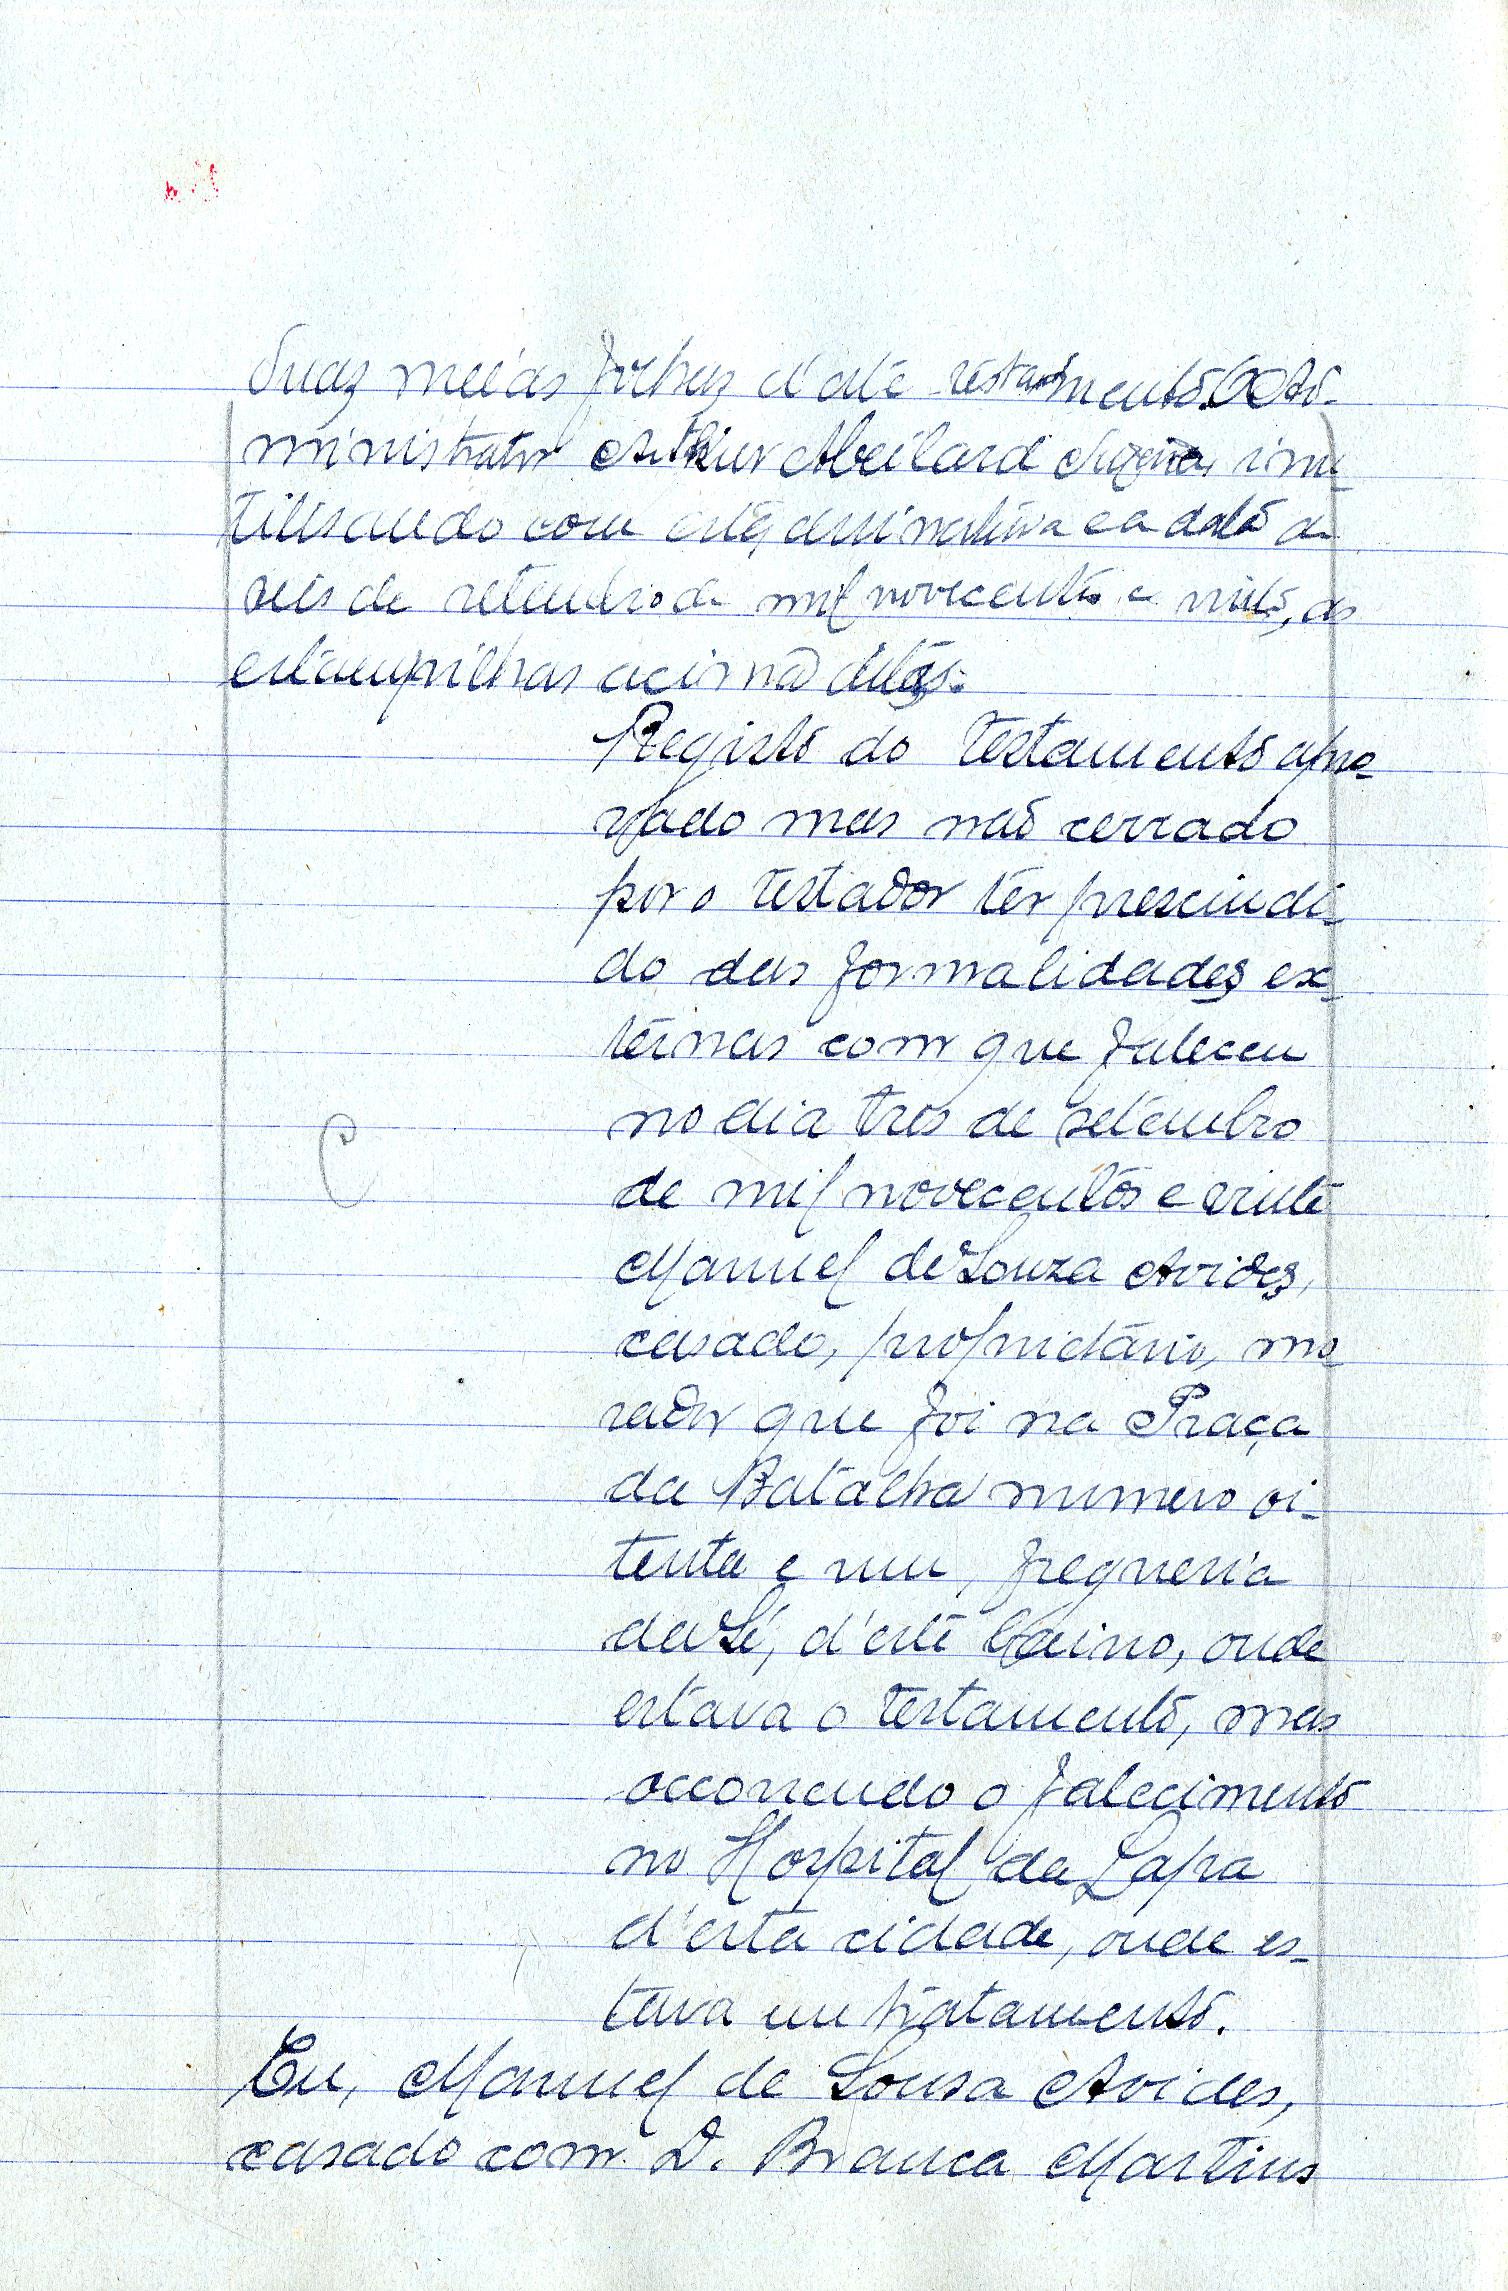 duas meias folhas d'este testamento. O Ad-
ministrador Arthur Abeilard inu-
tilisando com esta assinatura e a data de
seis de setembro de mil novecentos e vinte, as
estampilhas acima ditas.
Registo do testamento apro-
vado mas não cerrado
por o testador ter prescindi-
do das formalidades ex-
ternas com que faleceu
no dia tres de setembro
de mil novecentos e vinte
Manuel de Souza Avides,
casado, proprietário, mo-
rador que foi na Praça
da Batalha numero oi-
tenta e um, freguesia
da Sé, d'este bairro, onde
estava o testamento, mas
occorrendo o falecimento
no Hospital da Lapa
d'esta cidade, onde es-
tava em tratamento.
Eu, Manuel de Sousa Avides,
casado com D. Branca Martins